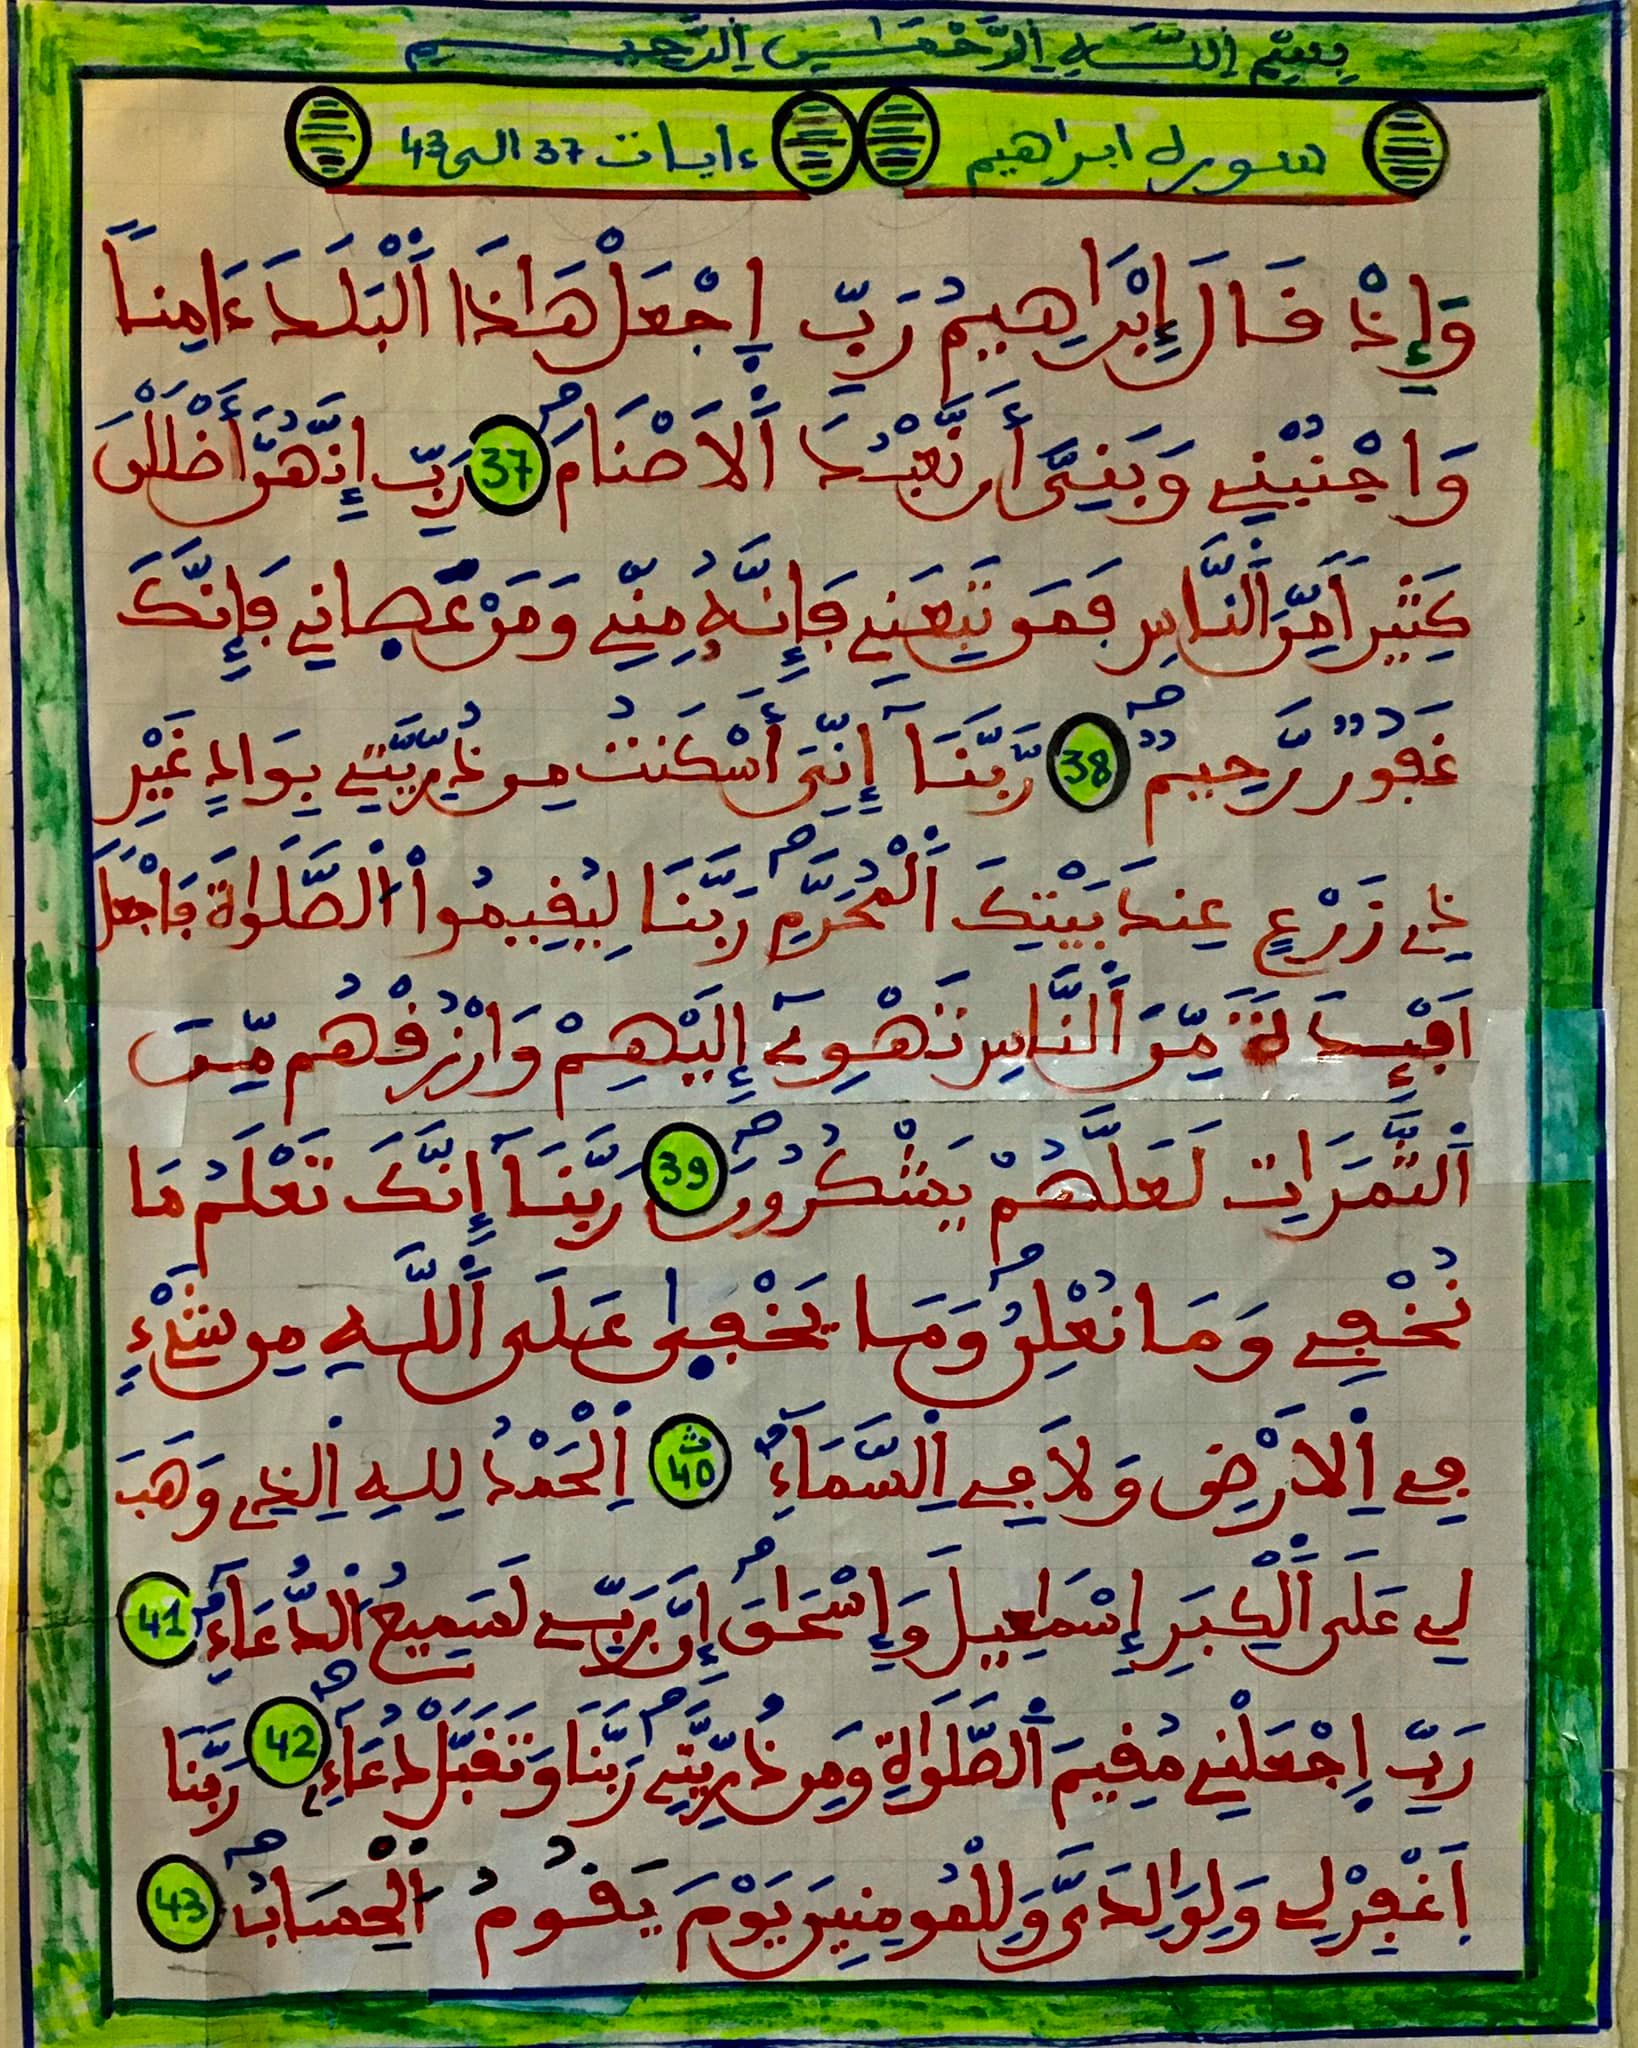 بِسْمِ اِللَّهِ اِلرَّحْمَٰنِ اِلرَّحِيمِ
سورة ابراهيم ءايات 37 الى 43
وَإِذْ قَالَ إِبْرَٰهِيمُ رَبِّ اِجْعَلْ هَٰذَا اَلْبَلَدَ ءَامِناٗ
وَاجْنُبْنِے وَبَنِيَّ أَن نَّعْبُدَ اَلَاصْنَامَ 37 رَبِّ إِنَّهُنَّ أَضْلَلْنَ
كَثِيراٗ مِّنَ اَلنَّاسِ فَمَن تَبِعَنِے فَإِنَّهُۥ مِنِّے وَمَنْ عَصَانِے فَإِنَّكَ
غَفُورٞ رَّحِيمٞ 38 رَّبَّنَآ إِنِّيَ أَسْكَنتُ مِن ذُرِّيَّتِے بِوَادٍ غَيْرِ
ذِے زَرْعٍ عِندَ بَيْتِكَ اَلْمُحَرَّمِ رَبَّنَا لِيُقِيمُواْ اُلصَّلَوٰةَ فَاجْعَلَ
اَفْـِٕدَةٗ مِّنَ اَلنَّاسِ تَهْوِےٓ إِلَيْهِمْ وَارْزُقْهُم مِّنَ
اَلثَّمَرَٰتِ لَعَلَّهُمْ يَشْكُرُونَ 39 رَبَّنَآ إِنَّكَ تَعْلَمُ مَا
نُخْفِے وَمَا نُعْلِنُ وَمَا يَخْفَىٰ عَلَى اَللَّهِ مِن شَےْءٖ
فِے اِلَارْضِ وَلَا فِے اِلسَّمَآءِ 40 اِلْحَمْدُ لِلهِ اِلذِے وَهَبَ
لِے عَلَى اَلْكِبَرِ إِسْمَٰعِيلَ وَإِسْحَٰقَ إِنَّ رَبِّے لَسَمِيعُ اُلدُّعَآءِ 41
رَبِّ اِجْعَلْنِے مُقِيمَ اَلصَّلَوٰةِ وَمِن ذُرِّيَّتِے رَبَّنَا وَتَقَبَّلْ دُعَآءِ 42 رَبَّنَا
اَغْفِرْ لِے وَلِوَٰلِدَيَّ وَلِلْمُومِنِينَ يَوْمَ يَقُومُ اُلْحِسَابُ 43